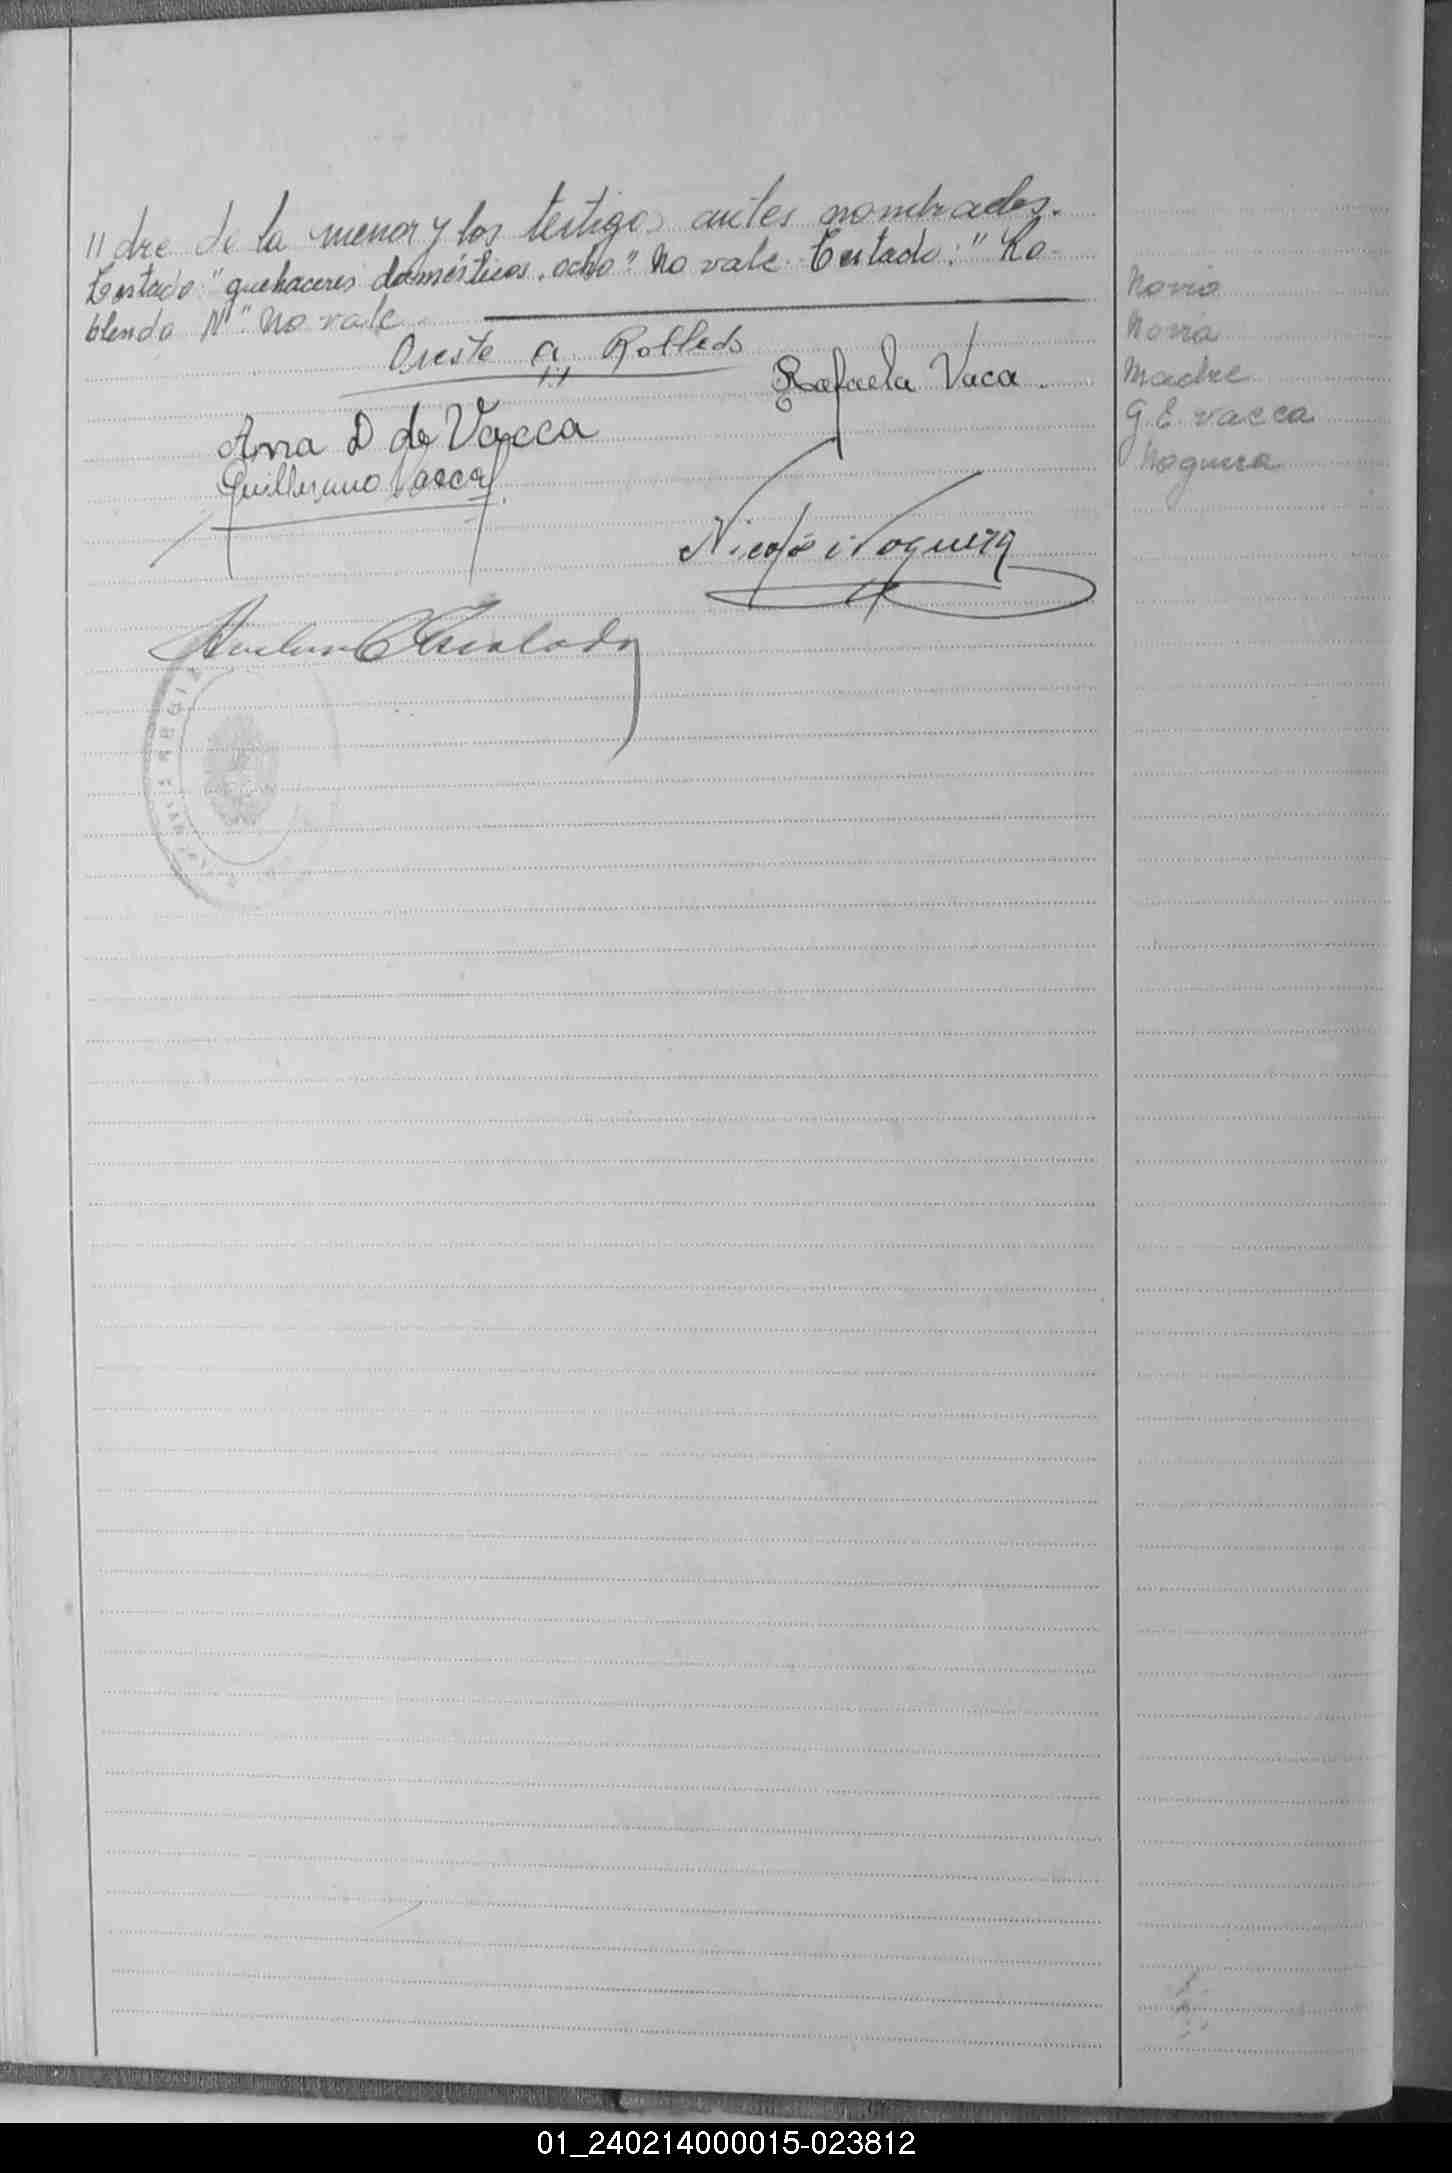 // dre de la menor y los testigos antes nombrados.
Testado: "quehaceres domésticos, ocho" No vale. Testado: "Ro-
blendo N" No vale.
Oreste A Rolledo
Rafaela Vaca.
Ana D de Vacca
Guillermo Vacca
Nicolás Noguera
REGIS
Novio
Novia
Madre
G. E. Vacca
Noguera
01_240214000015-023812